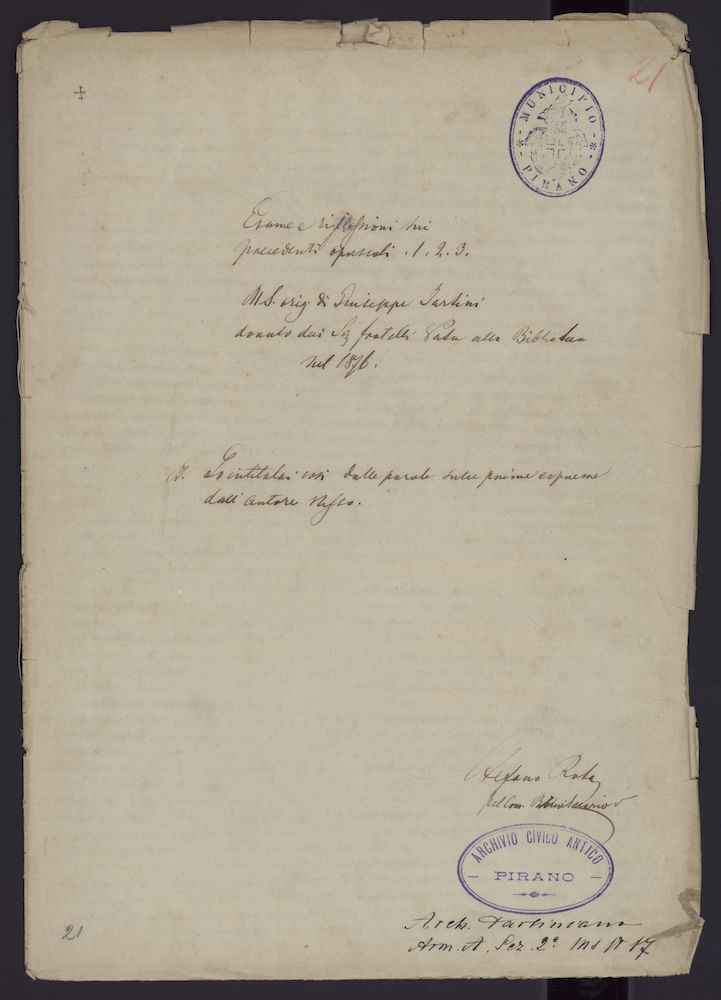 21
MUNICIPIO
PIRANO
Esame e riflessioni sui
precedenti opuscoli . 1. 2. 3.
MS. orig. di Giuseppe Tartini
donato dai Sig fratelli Vatta alla Biblioteca
nel 1876.
Lo intitolai così dalle parole sulle prime espresse
dall'autore stesso.
Stefano Rota
Bibliotecario
ARCHIVIO CIVICO ANTICO
PIRANO
Arch. Tartiniano
Arm. A. Sez. 2ª Ins N 17
21